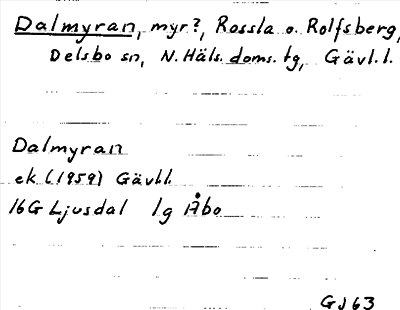 Dalmyran, myr?, Rossla o. Rolfsberg,
Delsbo sn, N. Häls. doms. tg, Gävl.l.
Dalmyran
ek (1959) Gävl.l.
16G Ljusdal lg Åbo
GJ63